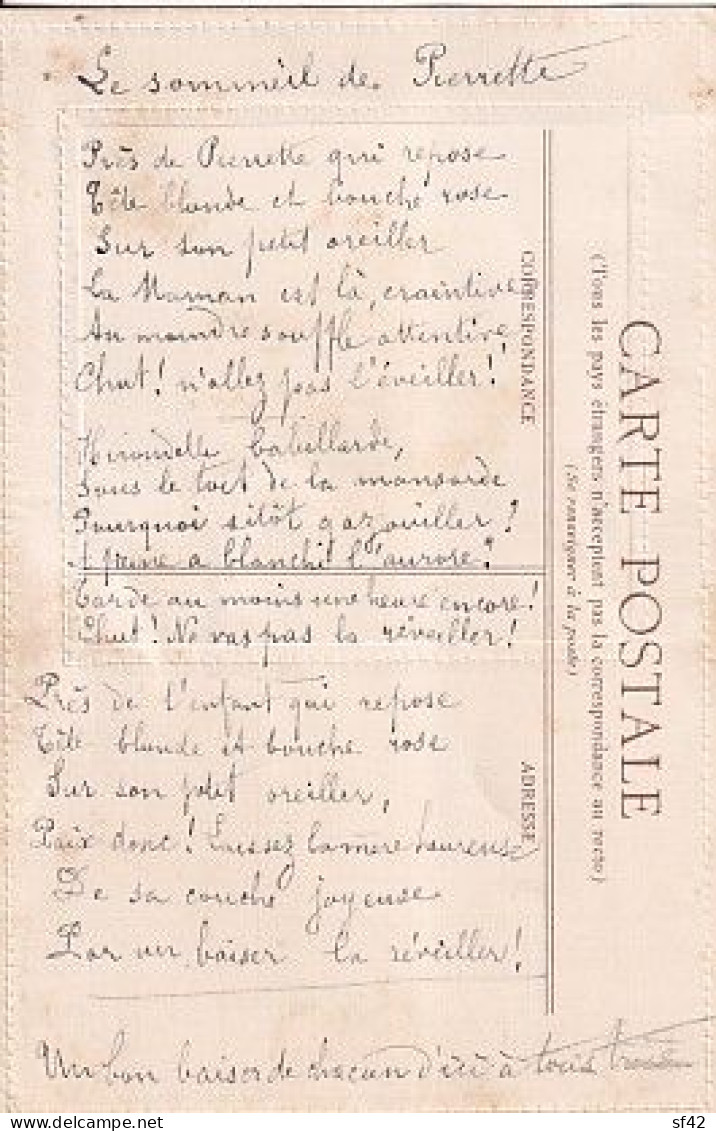 Le sommeil de Pierrette
Près de Pierrette qui repose
Tête blonde et bouche rose
Sur son petit oreiller
La Maman est là, craintive
Au moindre souffle attentive
Chut! n'allez pas l'éveiller!
Hirondelle babillarde,
Sous le toit de la mansarde
Pourquoi sitôt gazouiller?
A peine a blanchi l'aurore?
Tarde au moins une heure encore!
Chut! Ne vas pas la réveiller!
Près de l'enfant qui repose
Tête blonde et bouche rose
Sur son petit oreiller,
Paix donc! Laissez la mère heureuse
De sa couche joyeuse
Par un baiser la réveiller!
Un bon baiser de chacun d'ici à tous trois
CORRESPONDANCE
ADRESSE
CARTE POSTALE
(Tous les pays étrangers n'acceptent pas la correspondance au recto)
(Se renseigner à la poste)
sf42